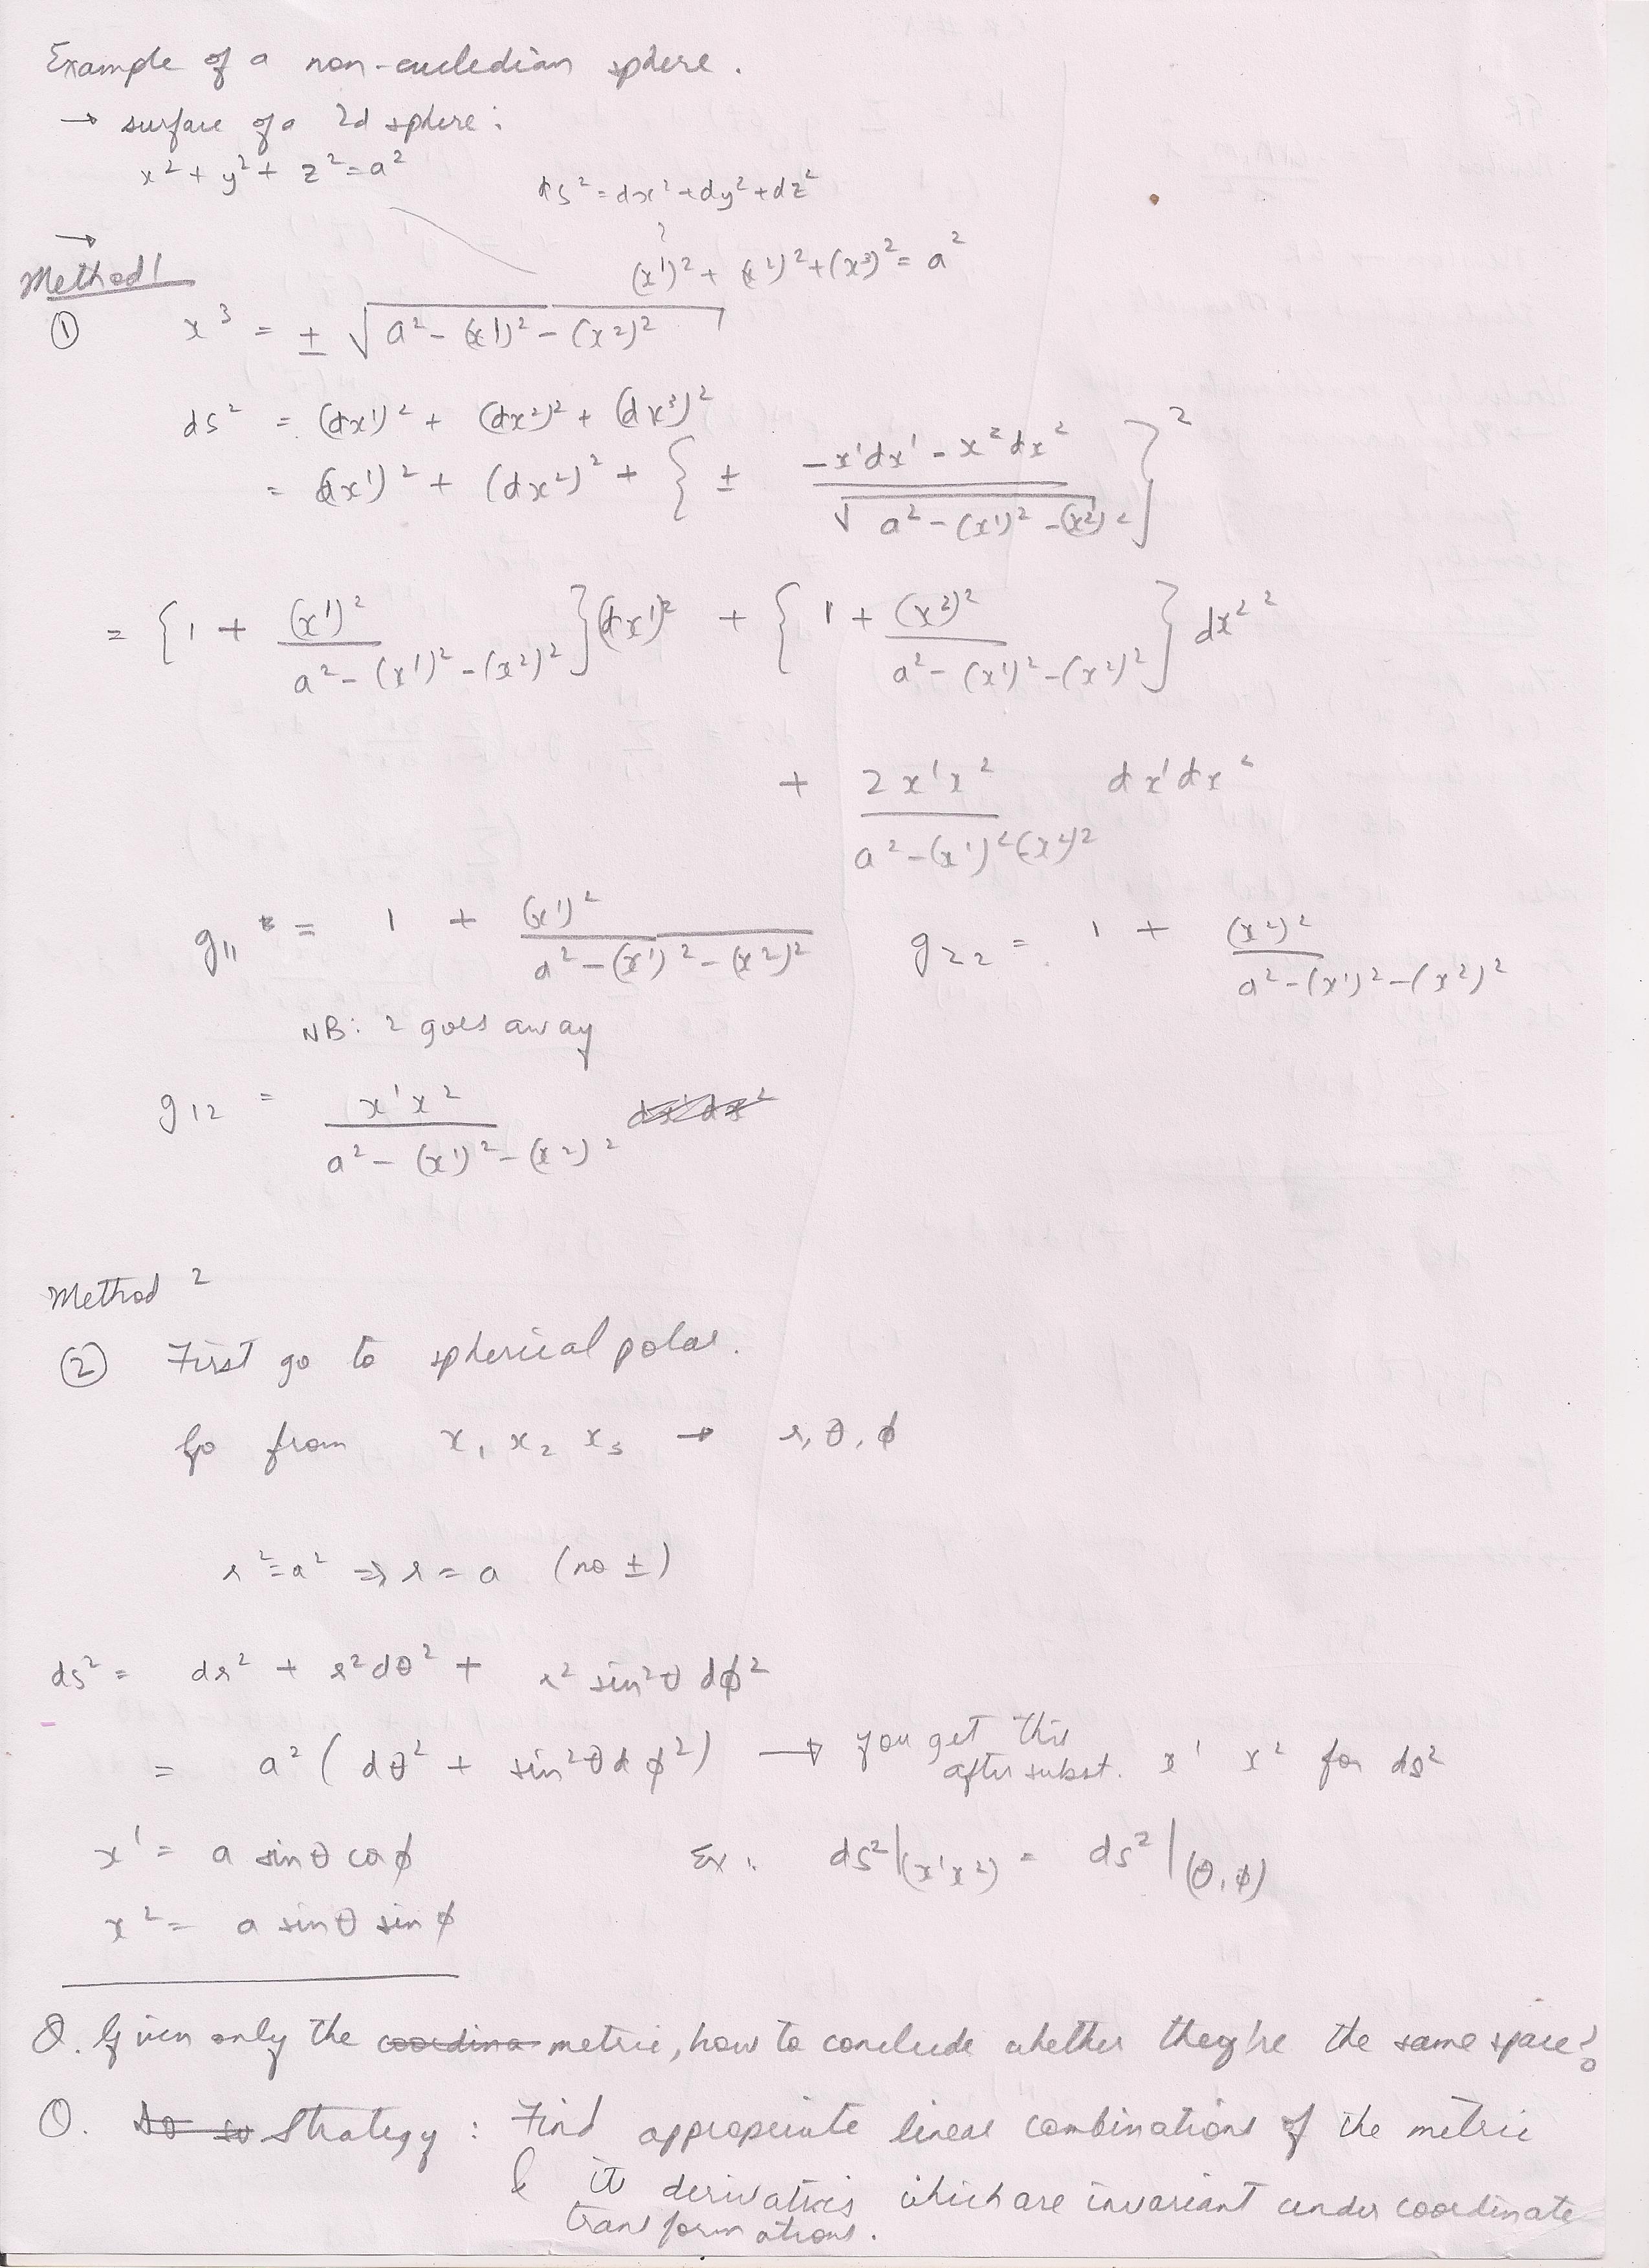 Example of a non-eucledian sphere.
→ surface of a 2d sphere:
x² + y² + z² = a²
ds² = dx² + dy² + dz²
→
(x¹)² + (x²)² + (x³)² = a²
Method 1
① x³ = ± √(a² - (x¹)² - (x²)²)
ds² = (dx¹)² + (dx²)² + (dx³)²
= (dx¹)² + (dx²)² + { ± (-x¹dx¹ - x²dx²) / √(a² - (x¹)² - (x²)²) }²
= { 1 + (x¹)² / (a² - (x¹)² - (x²)²) } (dx¹)² + { 1 + (x²)² / (a² - (x¹)² - (x²)²) } dx²²
+ 2x¹x² / (a² - (x¹)² (-x²)²) dx¹dx²
g₁₁ = 1 + (x¹)² / (a² - (x¹)² - (x²)²) g₂₂ = 1 + (x²)² / (a² - (x¹)² - (x²)²)
NB: 2 goes away
g₁₂ = x¹x² / (a² - (x¹)² - (x²)²) dx¹dx²
Method 2
② First go to spherical polar.
Go from x₁ x₂ x₃ → r, θ, φ
r² = a² ⇒ r = a (no ±)
ds² = dr² + r²dθ² + r² sin²θ dφ²
= a² (dθ² + sin²θ dφ²) → you get this
after subst. x¹ x² for ds²
x¹ = a sinθ cosφ Ex: ds²|(x¹x²) = ds²|(θ,φ)
x² = a sinθ sinφ
Q. Given only the coordina metric, how to conclude whether they're the same space?
Q. So so Strategy: Find appropriate linear combinations of the metric
& it derivatives which are invariant under coordinate
transformations.